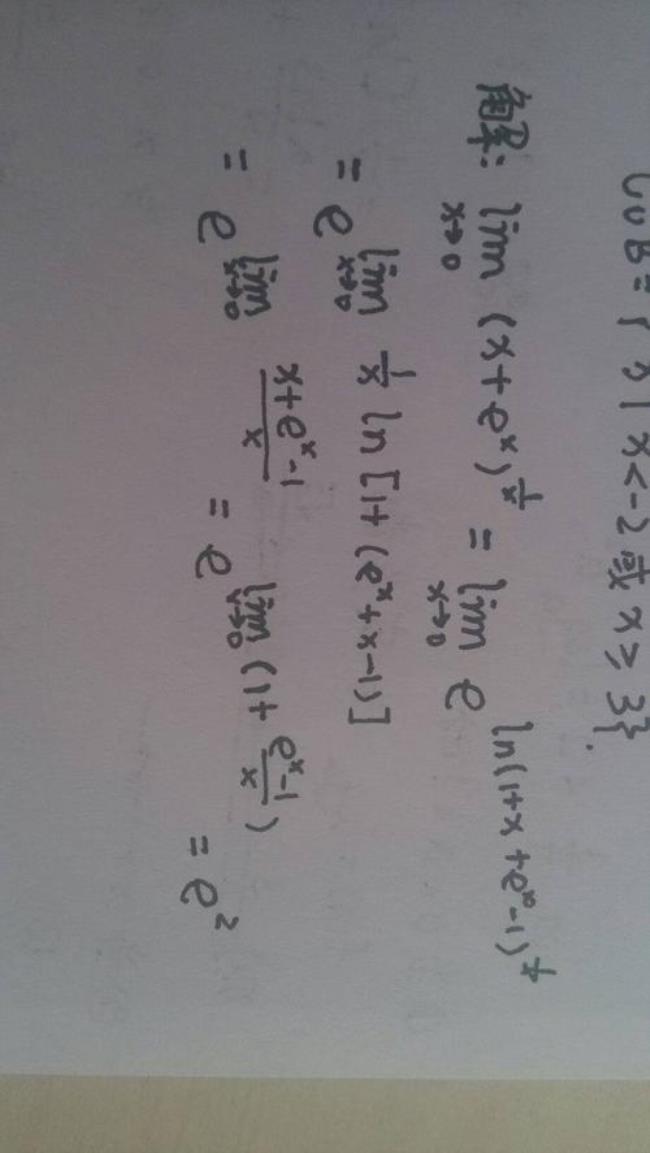 B = { x | x < -2 或 x ≥ 3}.
解: lim_{x→0} (x + e^x)^{1/x} = lim_{x→0} e^{ln(1+x+e^x-1)^{1/x}}
= e^{lim_{x→0} 1/x ln[1+(e^x+x-1)]}
= e^{lim_{x→0} (x+e^x-1)/x} = e^{lim_{x→0} (1+(e^x-1)/x)} = e^2